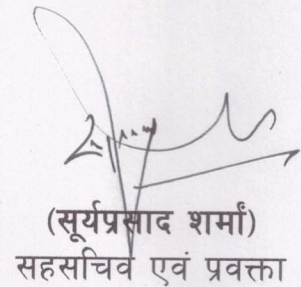 (सूर्यप्रसाद शर्मा)
सहसचिव एवं प्रवक्ता